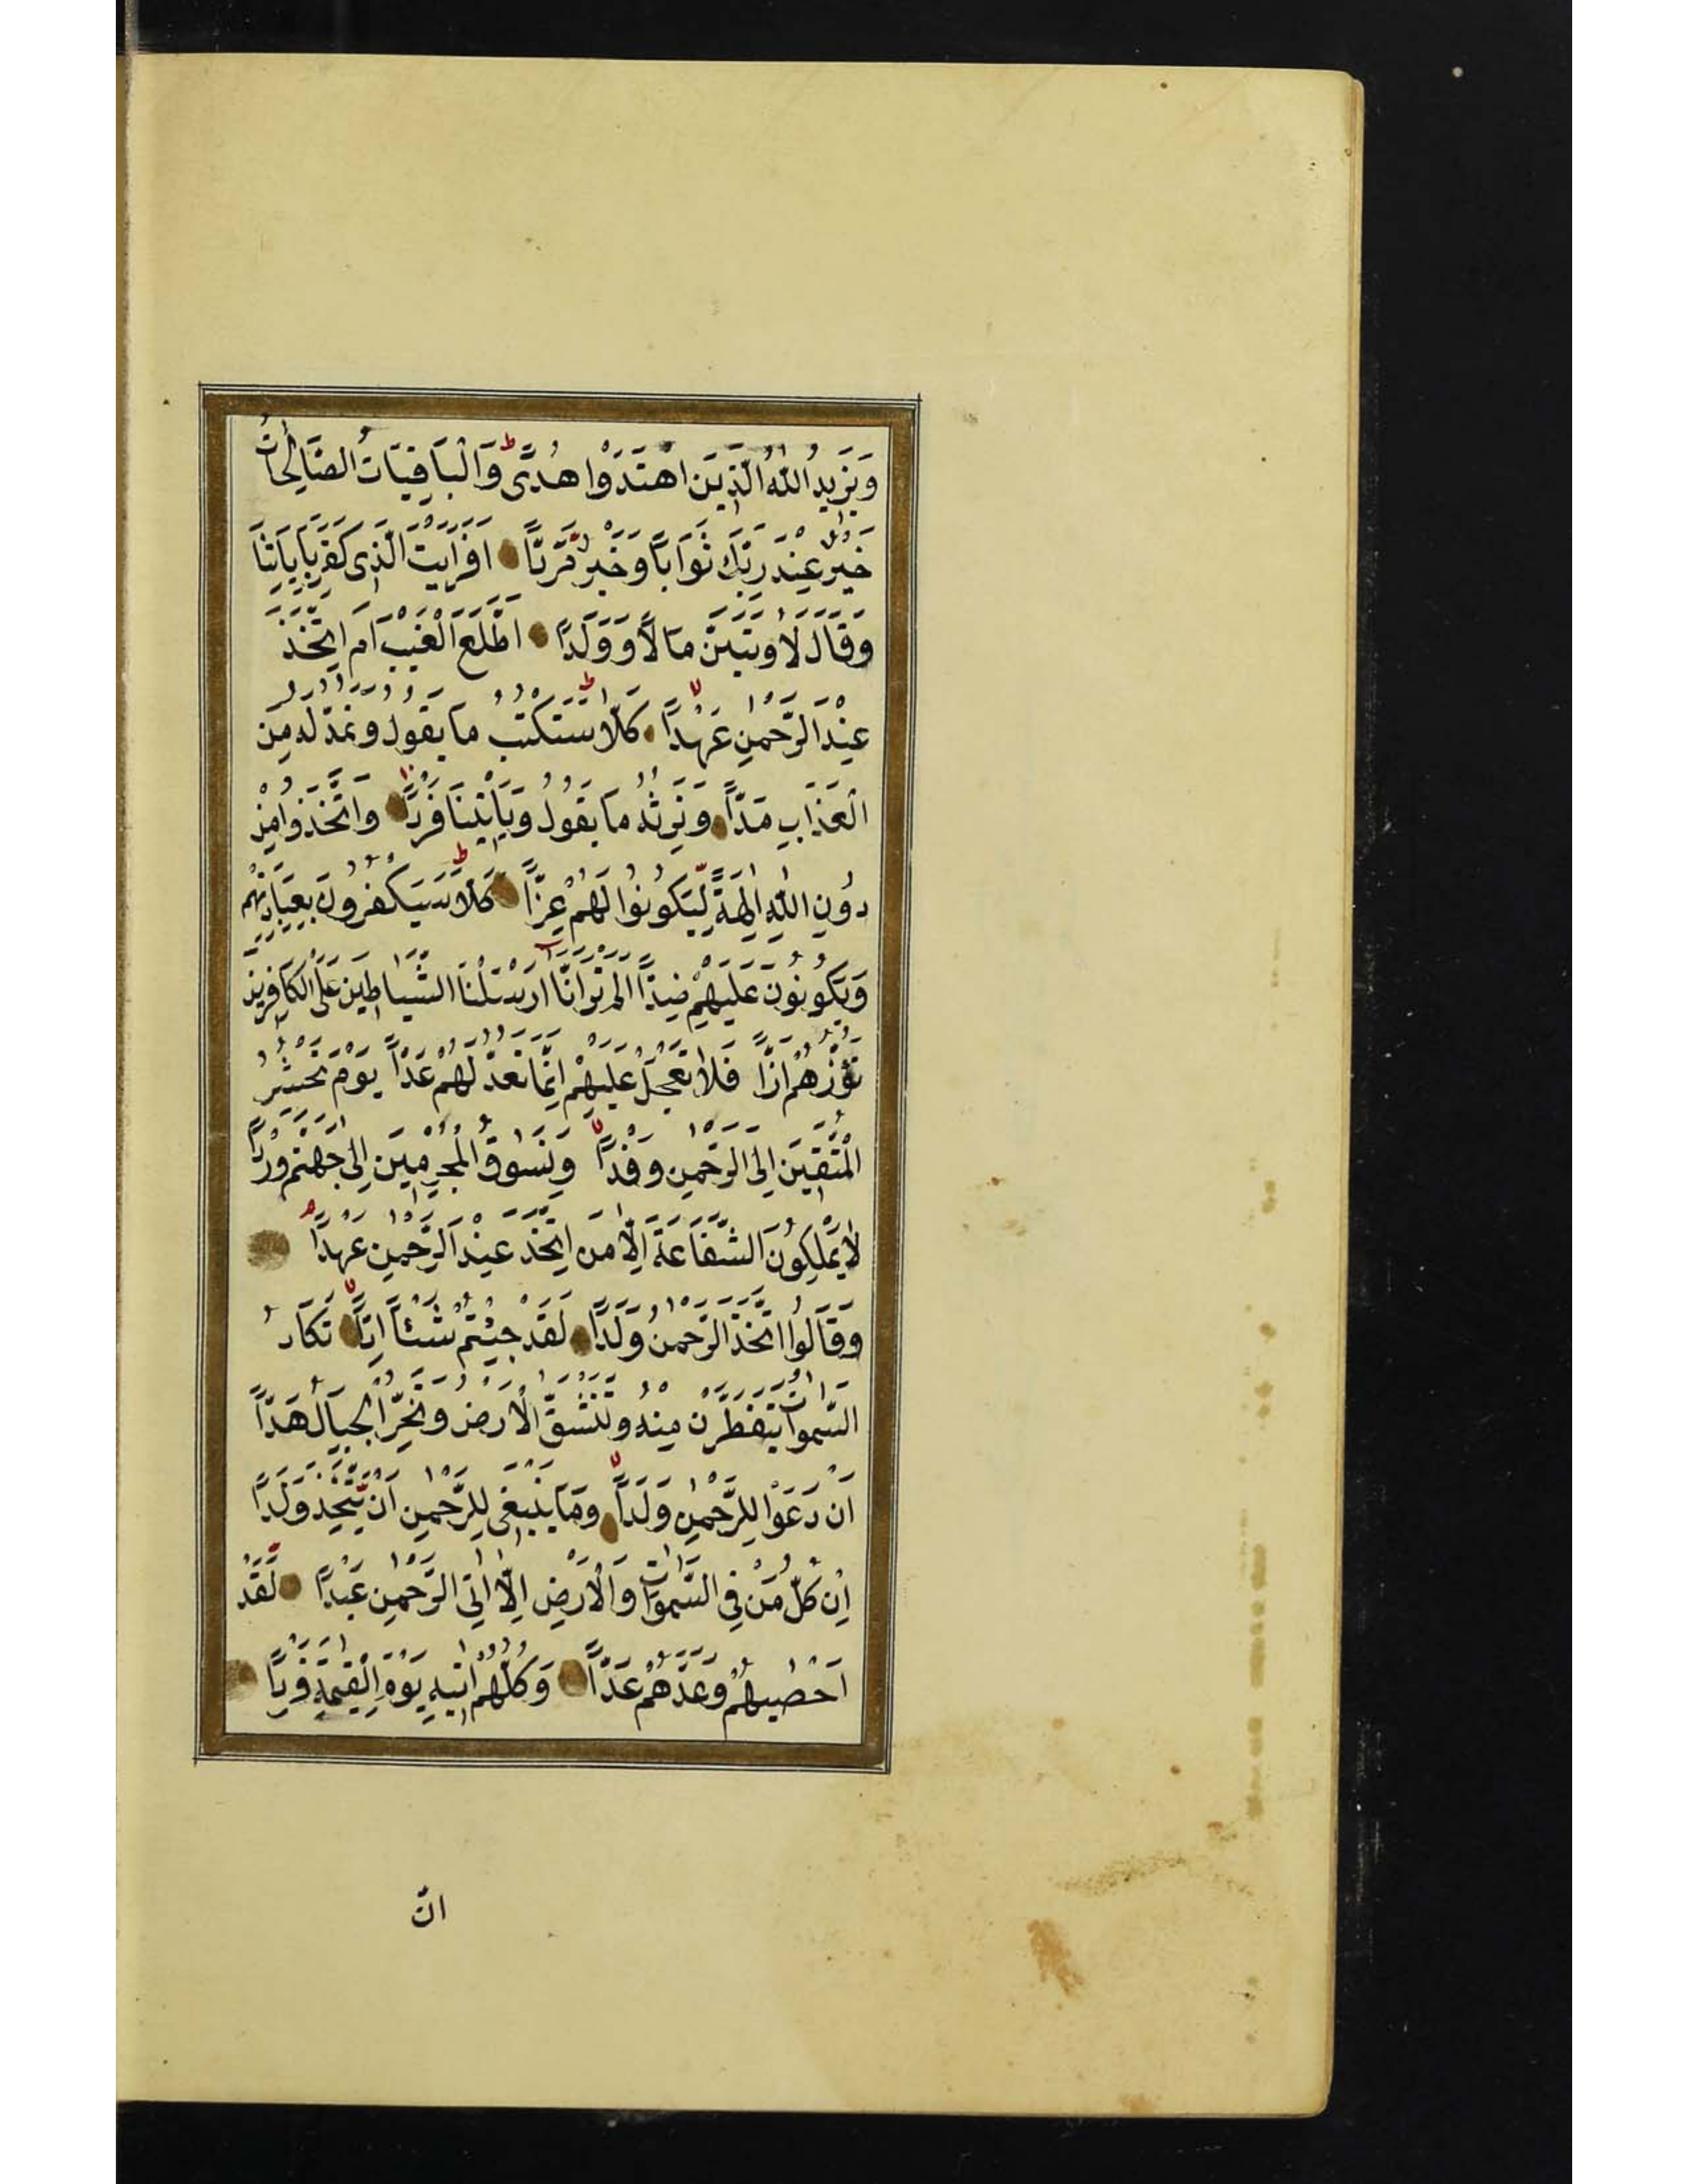 وَيَزِيدُ اللّٰهُ الَّذِينَ اهْتَدَوْا هُدًى ط وَالْبَاقِيَاتُ الصَّالِحَاتُ
خَيْرٌ عِنْدَ رَبِّكَ ثَوَابًا وَخَيْرٌ مَّرَدًّا اَفَرَاَيْتَ الَّذِى كَفَرَ بِاٰيَاتِنَا
وَقَالَ لَاُوتَيَنَّ مَالًا وَوَلَدًا اَطَّلَعَ الْغَيْبَ اَمِ اتَّخَذَ
عِنْدَ الرَّحْمٰنِ عَهْدًا لا كَلَّا ط سَنَكْتُبُ مَا يَقُولُ وَنَمُدُّ لَهُ مِنَ
الْعَذَابِ مَدًّا وَنَرِثُهُ مَا يَقُولُ وَيَاْتِينَا فَرْدًا وَاتَّخَذُوا مِنْ
دُونِ اللّٰهِ اٰلِهَةً لِّيَكُونُوا لَهُمْ عِزًّا كَلَّا ط سَيَكْفُرُونَ بِعِبَادَتِهِمْ
وَيَكُونُونَ عَلَيْهِمْ ضِدًّا اَلَمْ تَرَ اَنَّا اَرْسَلْنَا الشَّيَاطِينَ عَلَى الْكَافِرِينَ
تَؤُزُّهُمْ اَزًّا فَلَا تَعْجَلْ عَلَيْهِمْ اِنَّمَا نَعُدُّ لَهُمْ عَدًّا يَوْمَ نَحْشُرُ
الْمُتَّقِينَ اِلَى الرَّحْمٰنِ وَفْدًا لا وَنَسُوقُ الْمُجْرِمِينَ اِلٰى جَهَنَّمَ وِرْدًا
لَا يَمْلِكُونَ الشَّفَاعَةَ اِلَّا مَنِ اتَّخَذَ عِنْدَ الرَّحْمٰنِ عَهْدًا م
وَقَالُوا اتَّخَذَ الرَّحْمٰنُ وَلَدًا لَقَدْ جِئْتُمْ شَيْئًا اِدًّا لا تَكَادُ
السَّمٰوَاتُ يَتَفَطَّرْنَ مِنْهُ وَتَنْشَقُّ الْاَرْضُ وَتَخِرُّ الْجِبَالُ هَدًّا
اَنْ دَعَوْا لِلرَّحْمٰنِ وَلَدًا لا وَمَا يَنْبَغِى لِلرَّحْمٰنِ اَنْ يَّتَّخِذَ وَلَدًا
اِنْ كُلُّ مَنْ فِى السَّمٰوَاتِ وَالْاَرْضِ اِلَّا اٰتِى الرَّحْمٰنِ عَبْدًا لَقَدْ
اَحْصٰيهُمْ وَعَدَّهُمْ عَدًّا وَكُلُّهُمْ اٰتِيهِ يَوْمَ الْقِيٰمَةِ فَرْدًا
انّ